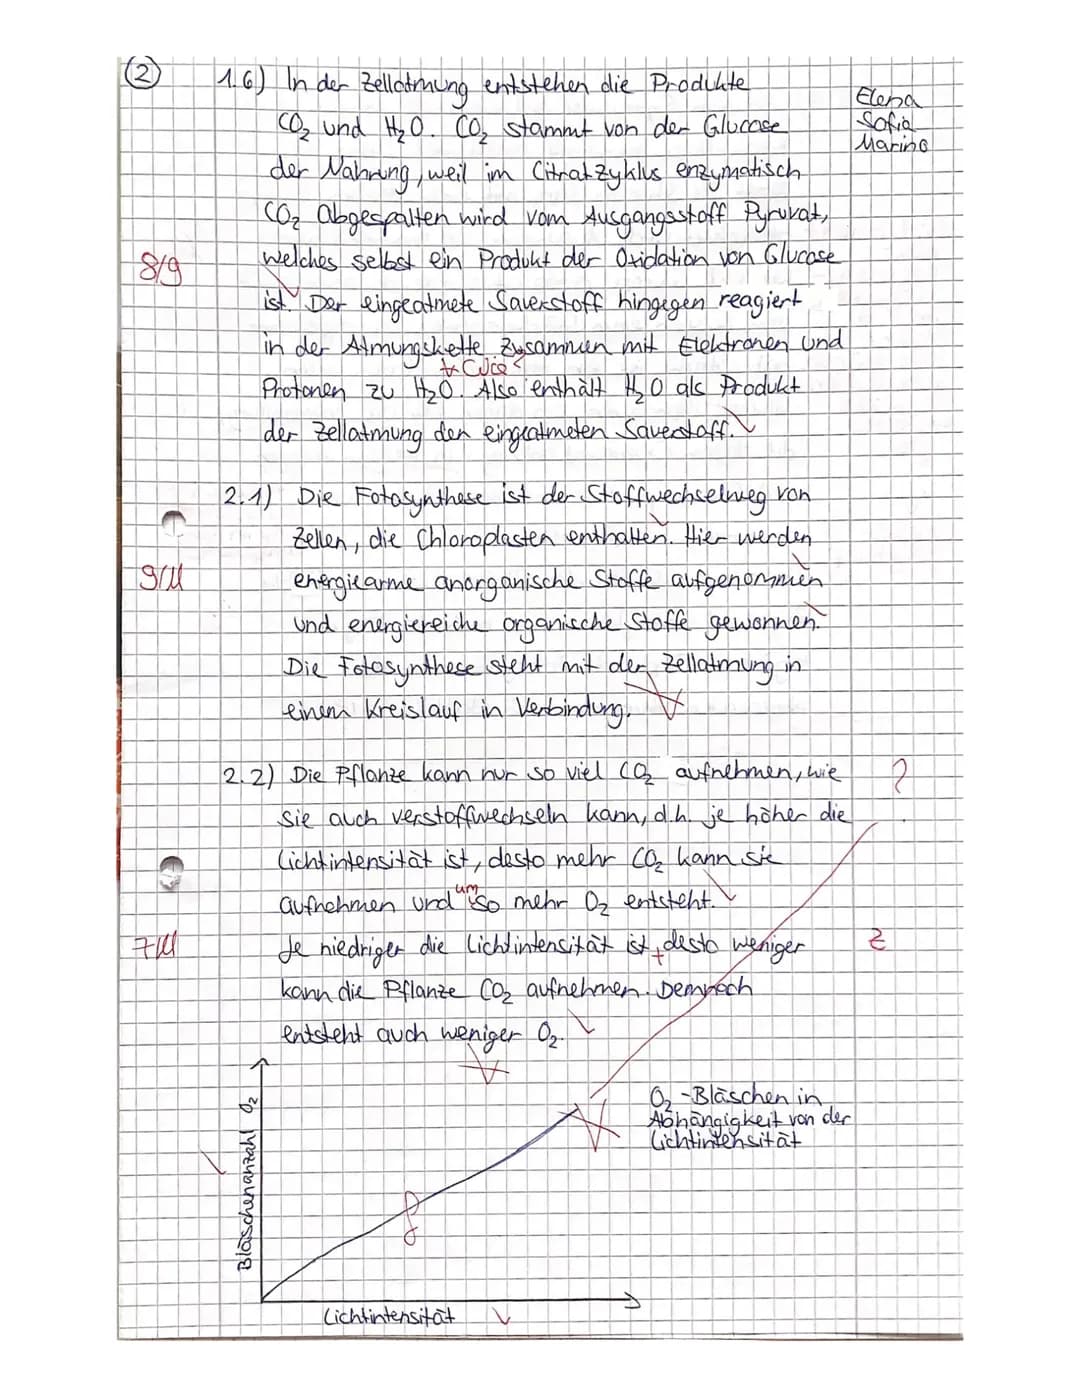 2
1.6) In der Zellatmung entstehen die Produkte
Elena
Sofia
Marino
CO₂ und H₂O. CO₂ stammt von der Glucose
der Nahrung, weil im Citratzyklus enzymatisch
CO₂ Abgespalten wird vom Ausgangsstoff Pyruvat,
8/9
welches selbst ein Produkt der Oxidation von Glucose
ist. Der eingeatmete Sauerstoff hingegen reagiert
in der Atmungskette zusammen mit Elektronen und
Protonen zu H₂O. Also enthält H₂O als Produkt
der Zellatmung den eingeatmeten Sauerstoff.
2.1) Die Fotosynthese ist der Stoffwechselweg von
Zellen, die Chloroplasten enthalten. Hier werden
energiearme anorganische Stoffe aufgenommen
und energiereiche organische Stoffe gewonnen.
Die Fotosynthese steht mit der Zellatmung in
einem Kreislauf in Verbindung.
2.2) Die Pflanze kann nur so viel CO₂ aufnehmen, wie
?
sie auch verstoffwechseln kann, d.h. je höher die
Lichtintensität ist, desto mehr CO₂ kann sie
um
aufnehmen und so mehr O₂ entsteht.
Je niedriger die Lichtintensität ist, desto weniger
kann die Pflanze CO₂ aufnehmen. Demnach
entsteht auch weniger O₂.
O₂-Bläschen in
Abhängigkeit von der
Lichtintensität
Bläschenanzahl O₂
Lichtintensität